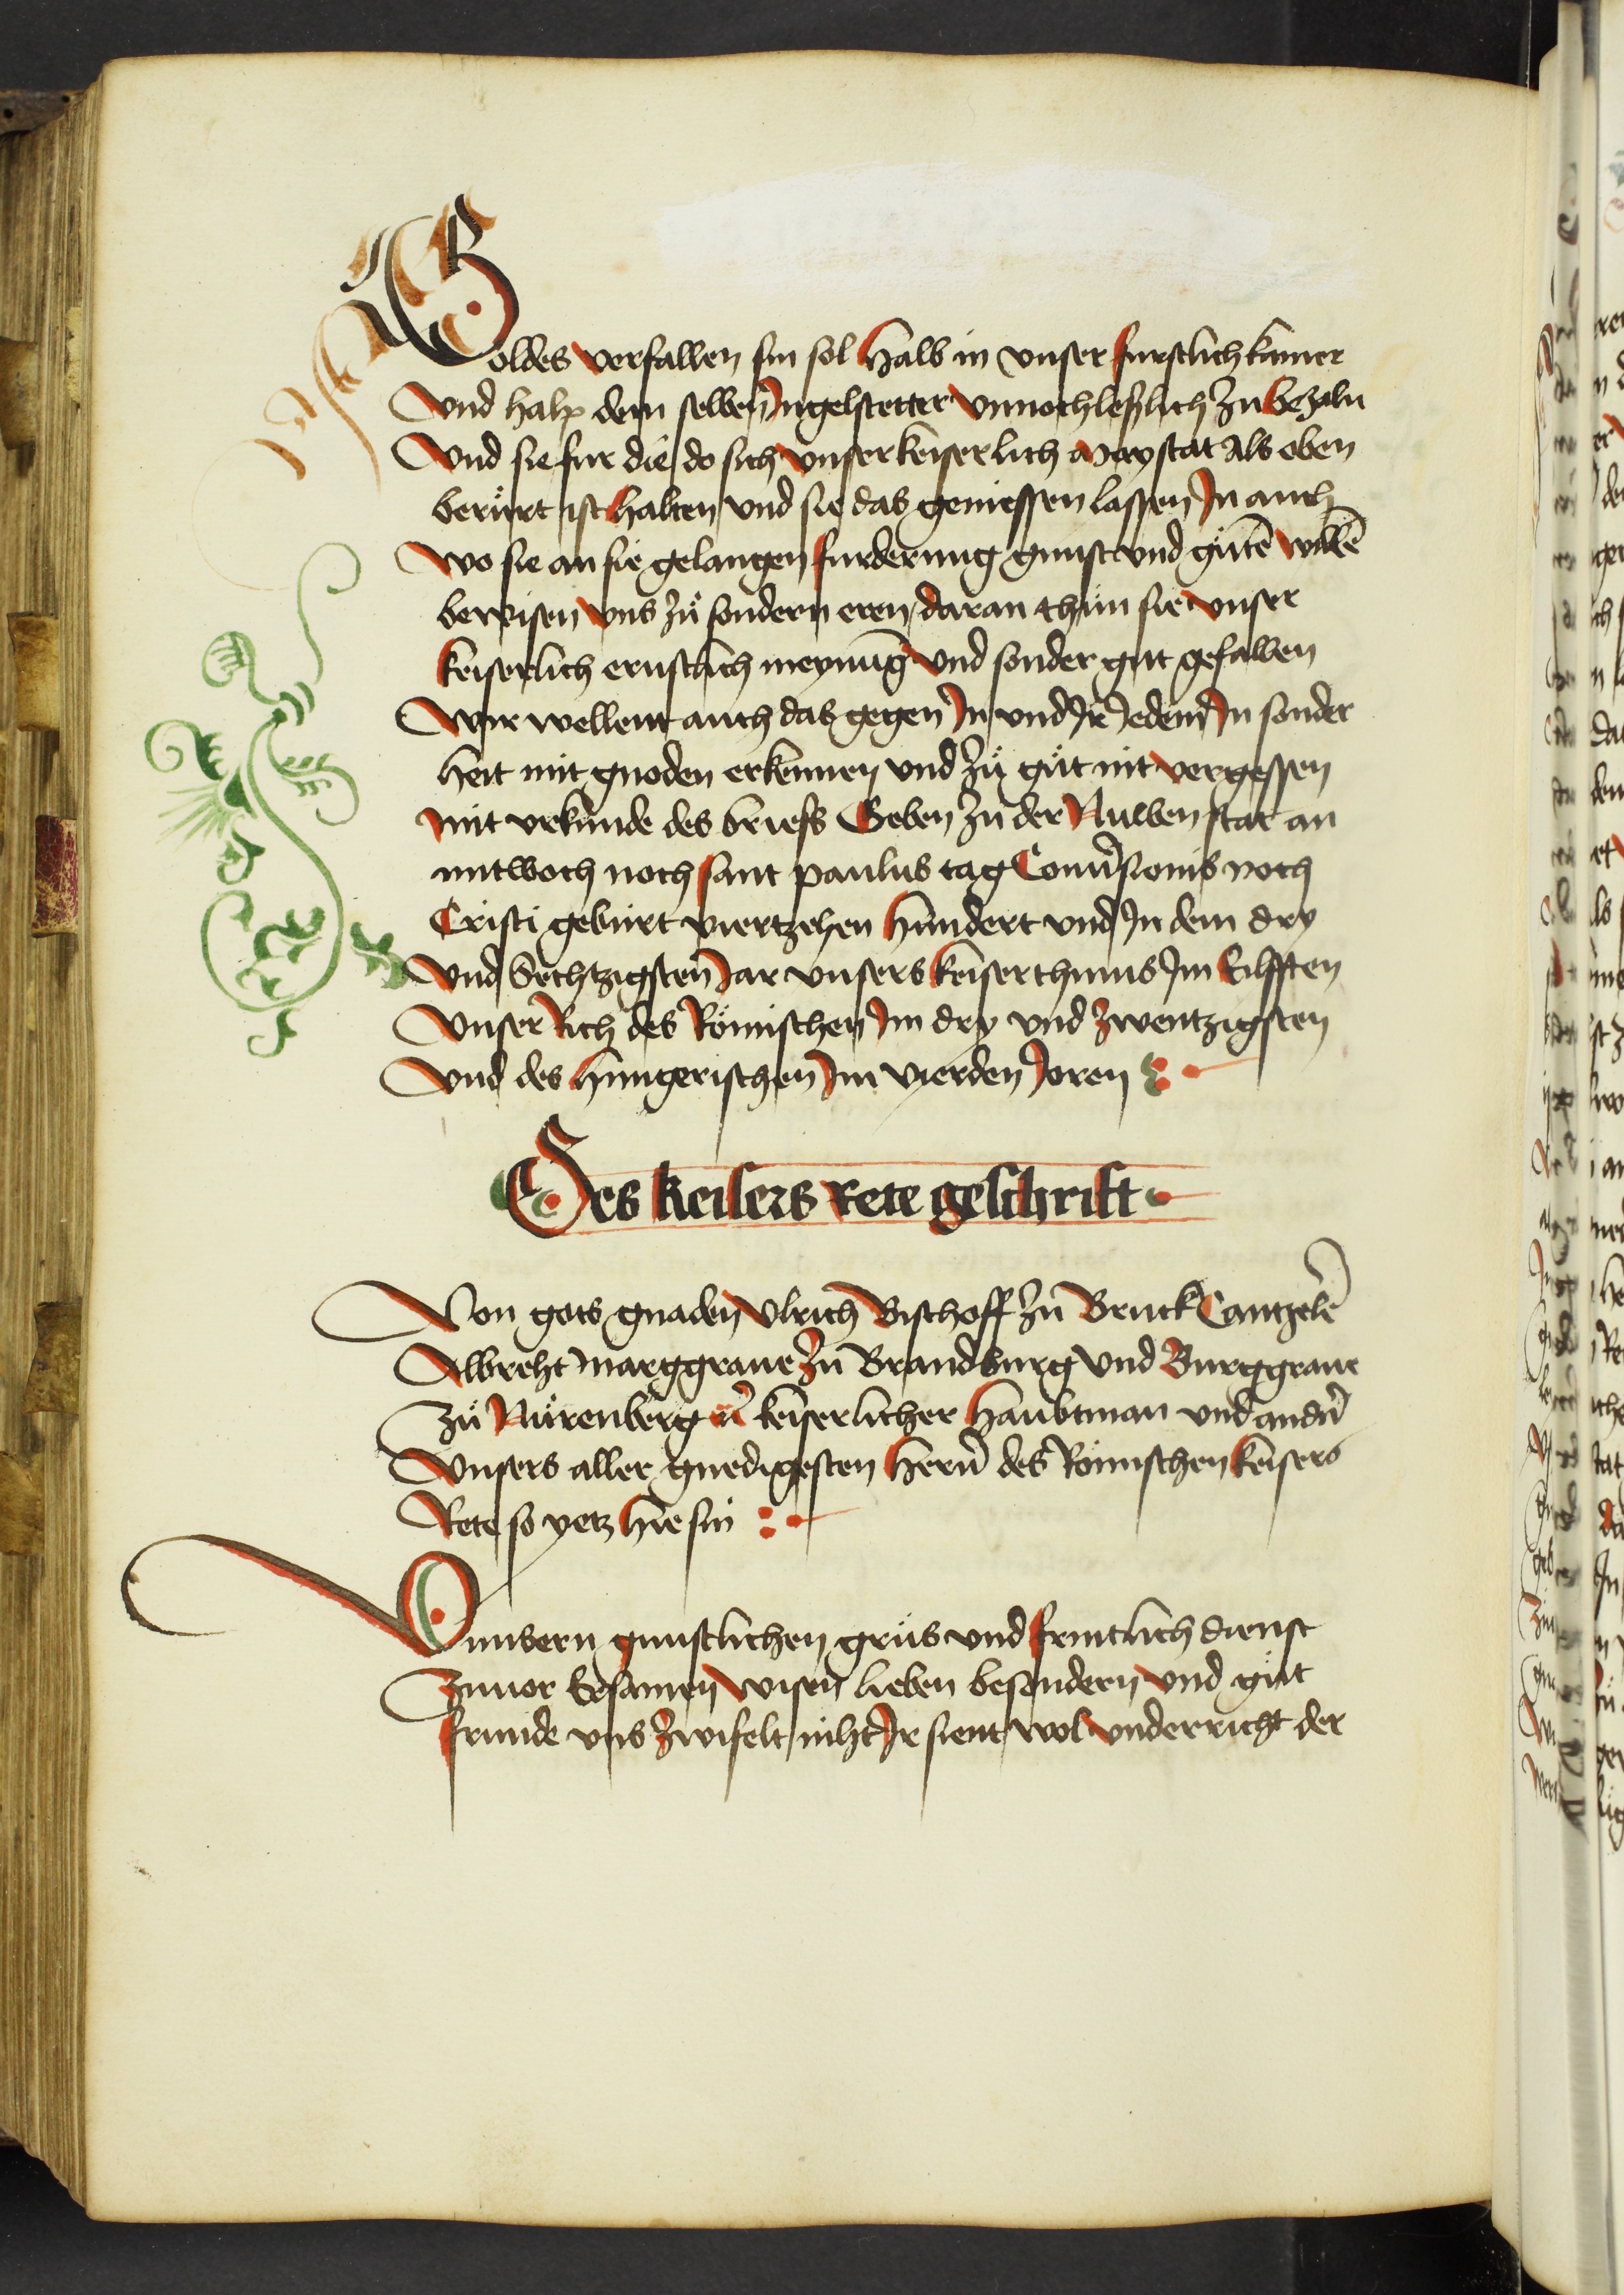 Goldes verfallen sin sol halb in vnser furstlich kamer
Vnd halp dem selben Ingelstetter vnnochleßlich zu bezaln
Vnd sie fur die do sich vnser keiserlich Maystat als oben
berürt ist halten vnd sie das geniessen lassen In auch
wo sie an sie gelangen furderung gunst vnd gütē willē
bewisen vns zü sondern eren daran thün sie vnser
keiserlich ernstlich meynung vnd sonder gut gefallen
Wir wellent auch das gegen In vnd Ir Jedem In sonder
heit mit gnoden erkennen vnd zü güt nit vergessen
mit vrkunde des briefs Geben zu der Nuwen stat an
mitwoch noch sant paulus tag Conuersionis noch
Cristi geburt viertzehen hundert vnd In dem dry
Vnd Sechtzigsten Jar vnsers keiserthums Im Eilfften
Vnser Rich des Römischen Im dry vnd zwentzigsten
Vnd des hungerischen Im vierden Joren
Des keisers rete geschrift
Von gots gnaden Vlrich Bischoff zu Bruck Cantzelē
Albreht marggraue zu Brandburg vnd Burggraue
zü Nürenberg keiserlicher haubtman vnd andn̄
Vnsers aller gnedigesten hern̄ des Römischen keisers
Rete so yetz hie sin
Vnnsern gunstlichen grüs vnd fruntlich dienst
zuuor Ersamen wisen lieben besondern vnd güt
frunde vns zwifelt niht Ir sient wol vnderricht der